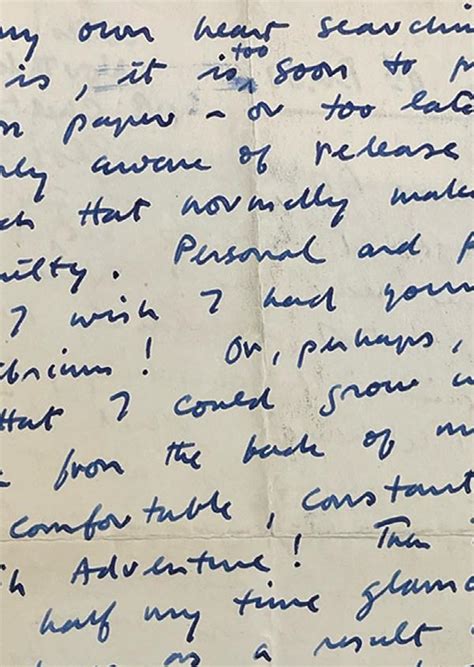 my own heart searchin
is, it is too soon to p
n paper - or too late
ly aware of release
ch that normally make
uilty. Personal and p
I wish I had your
ibrium! Or, perhaps,
that I could grow
from the back of m
comfortable, constant
th Adventure! Then
half my time glamo
as a result